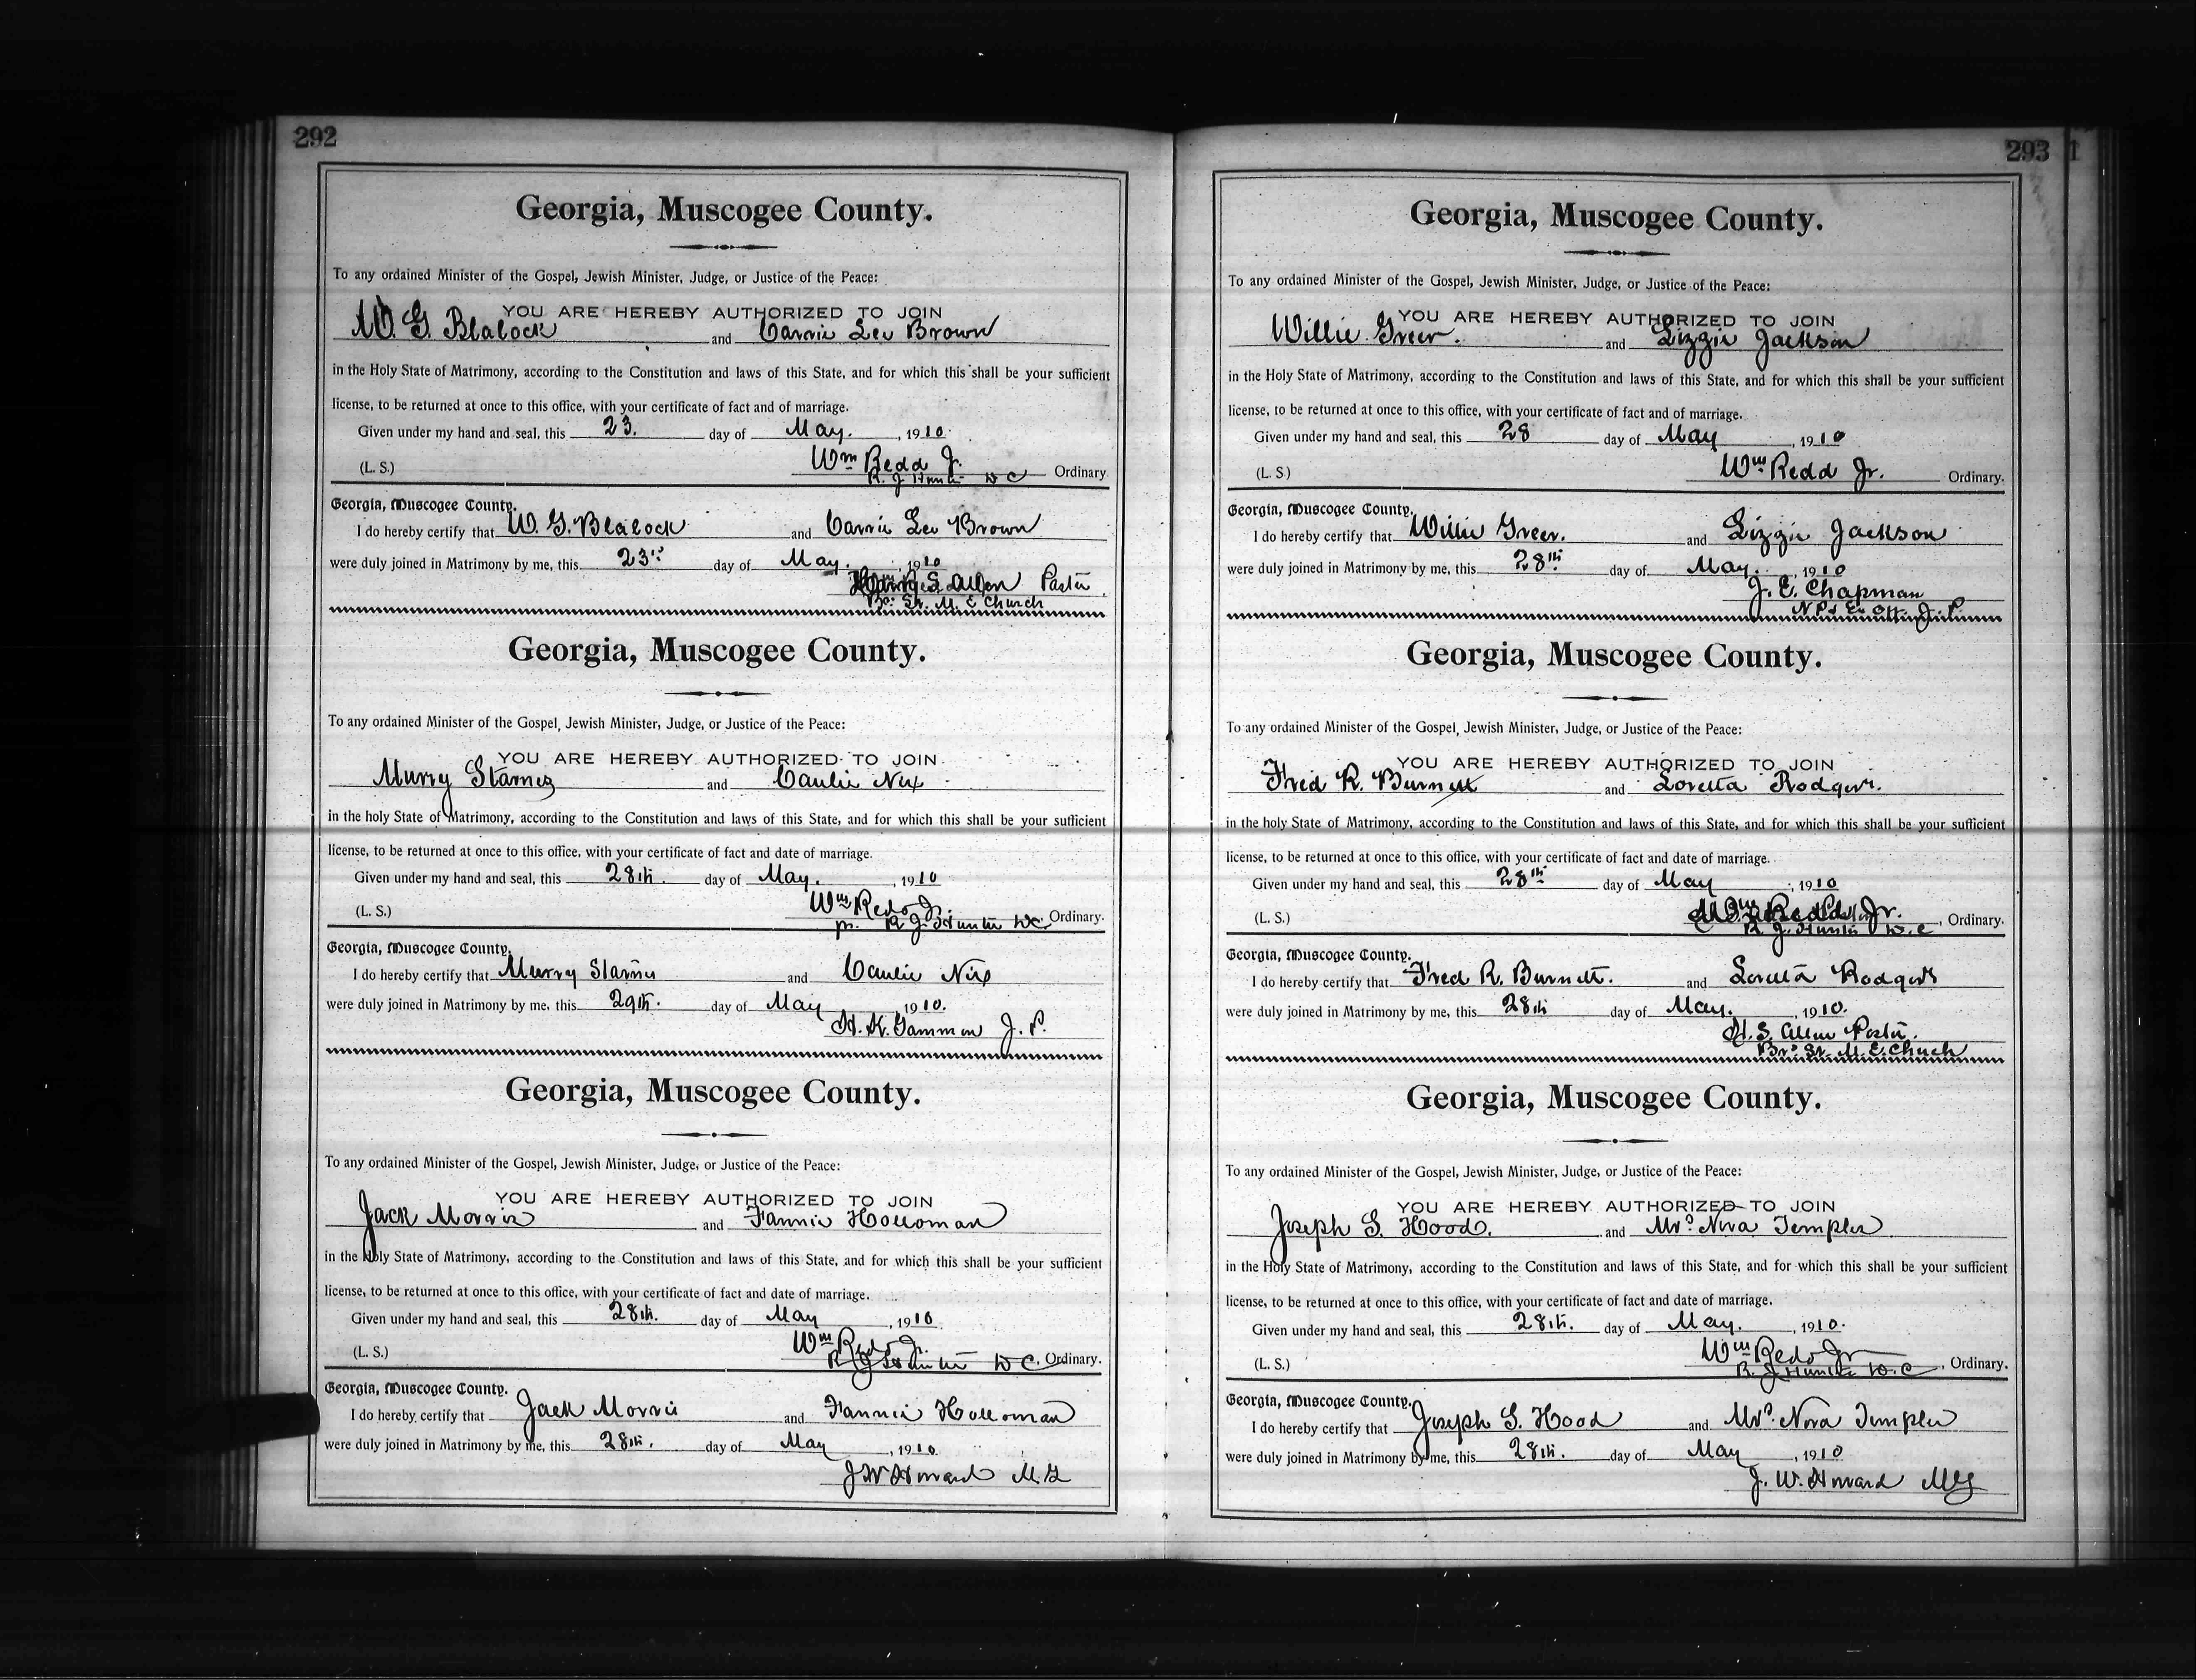 292
Georgia, Muscogee County.
To any ordained Minister of the Gospel, Jewish Minister, Judge, or Justice of the Peace:
YOU ARE HEREBY AUTHORIZED TO JOIN
W. G. Blalock and Carrie Lee Brown
in the Holy State of Matrimony, according to the Constitution and laws of this State, and for which this shall be your sufficient
license, to be returned at once to this office, with your certificate of fact and of marriage.
Given under my hand and seal, this 23. day of May. , 1910.
(L. S.) Wm Redd Jr. Ordinary.
R. J. Hunter D C
Georgia, Muscogee County.
I do hereby certify that W. G. Blalock and Carrie Lee Brown
were duly joined in Matrimony by me, this 23rd day of May. , 1910
S. Allen Pastor
Br. St. M. E Church
Georgia, Muscogee County.
To any ordained Minister of the Gospel, Jewish Minister, Judge, or Justice of the Peace:
YOU ARE HEREBY AUTHORIZED TO JOIN
Murry Starnes and Caulie Nix
in the holy State of Matrimony, according to the Constitution and laws of this State, and for which this shall be your sufficient
license, to be returned at once to this office, with your certificate of fact and date of marriage.
Given under my hand and seal, this 28th. day of May. , 1910
(L. S.) Wm Redd Jr. Ordinary.
pr. R J Hunter D C.
Georgia, Muscogee County.
I do hereby certify that Murry Starnes and Caulie Nix
were duly joined in Matrimony by me, this 29th. day of May , 1910.
H. K. Gammon J. P.
Georgia, Muscogee County.
To any ordained Minister of the Gospel, Jewish Minister, Judge, or Justice of the Peace:
YOU ARE HEREBY AUTHORIZED TO JOIN
Jack Morris and Fannie Holloman
in the Holy State of Matrimony, according to the Constitution and laws of this State, and for which this shall be your sufficient
license, to be returned at once to this office, with your certificate of fact and date of marriage.
Given under my hand and seal, this 28th. day of May , 1910
(L. S.) Wm Redd Jr. Ordinary.
R J Hunter D C
Georgia, Muscogee County.
I do hereby certify that Jack Morris and Fannie Holloman
were duly joined in Matrimony by me, this 28th. day of May , 1910
J W Howard M. G
293
Georgia, Muscogee County.
To any ordained Minister of the Gospel, Jewish Minister, Judge, or Justice of the Peace:
YOU ARE HEREBY AUTHORIZED TO JOIN
Willie Greer. and Lizzie Jackson
in the Holy State of Matrimony, according to the Constitution and laws of this State, and for which this shall be your sufficient
license, to be returned at once to this office, with your certificate of fact and of marriage.
Given under my hand and seal, this 28 day of May , 1910
(L. S.) Wm Redd Jr. Ordinary.
Georgia, Muscogee County.
I do hereby certify that Willie Greer. and Lizzie Jackson
were duly joined in Matrimony by me, this 28th day of May. , 1910
J. E. Chapman
N P & Ex Off. J. P.
Georgia, Muscogee County.
To any ordained Minister of the Gospel, Jewish Minister, Judge, or Justice of the Peace:
YOU ARE HEREBY AUTHORIZED TO JOIN
Fred R. Burnett and Loretta Rodgers.
in the holy State of Matrimony, according to the Constitution and laws of this State, and for which this shall be your sufficient
license, to be returned at once to this office, with your certificate of fact and date of marriage.
Given under my hand and seal, this 28th day of May , 1910
(L. S.) Wm Redd Jr. , Ordinary.
R. J. Hunter D. C
Georgia, Muscogee County.
I do hereby certify that Fred R. Burnett. and Loretta Rodgers
were duly joined in Matrimony by me, this 28th day of May. , 1910.
H. S. Allen Pastor.
Br. St. M. E. Church
Georgia, Muscogee County.
To any ordained Minister of the Gospel, Jewish Minister, Judge, or Justice of the Peace:
YOU ARE HEREBY AUTHORIZED TO JOIN
Joseph S. Hood. and Mrs. Nova Templer
in the Holy State of Matrimony, according to the Constitution and laws of this State, and for which this shall be your sufficient
license, to be returned at once to this office, with your certificate of fact and date of marriage.
Given under my hand and seal, this 28th. day of May. , 1910.
(L. S.) Wm Redd Jr , Ordinary.
R. J Hunter D. C
Georgia, Muscogee County.
I do hereby certify that Joseph S. Hood and Mrs. Nova Templer
were duly joined in Matrimony by me, this 28th. day of May , 1910
J. W. Howard MG